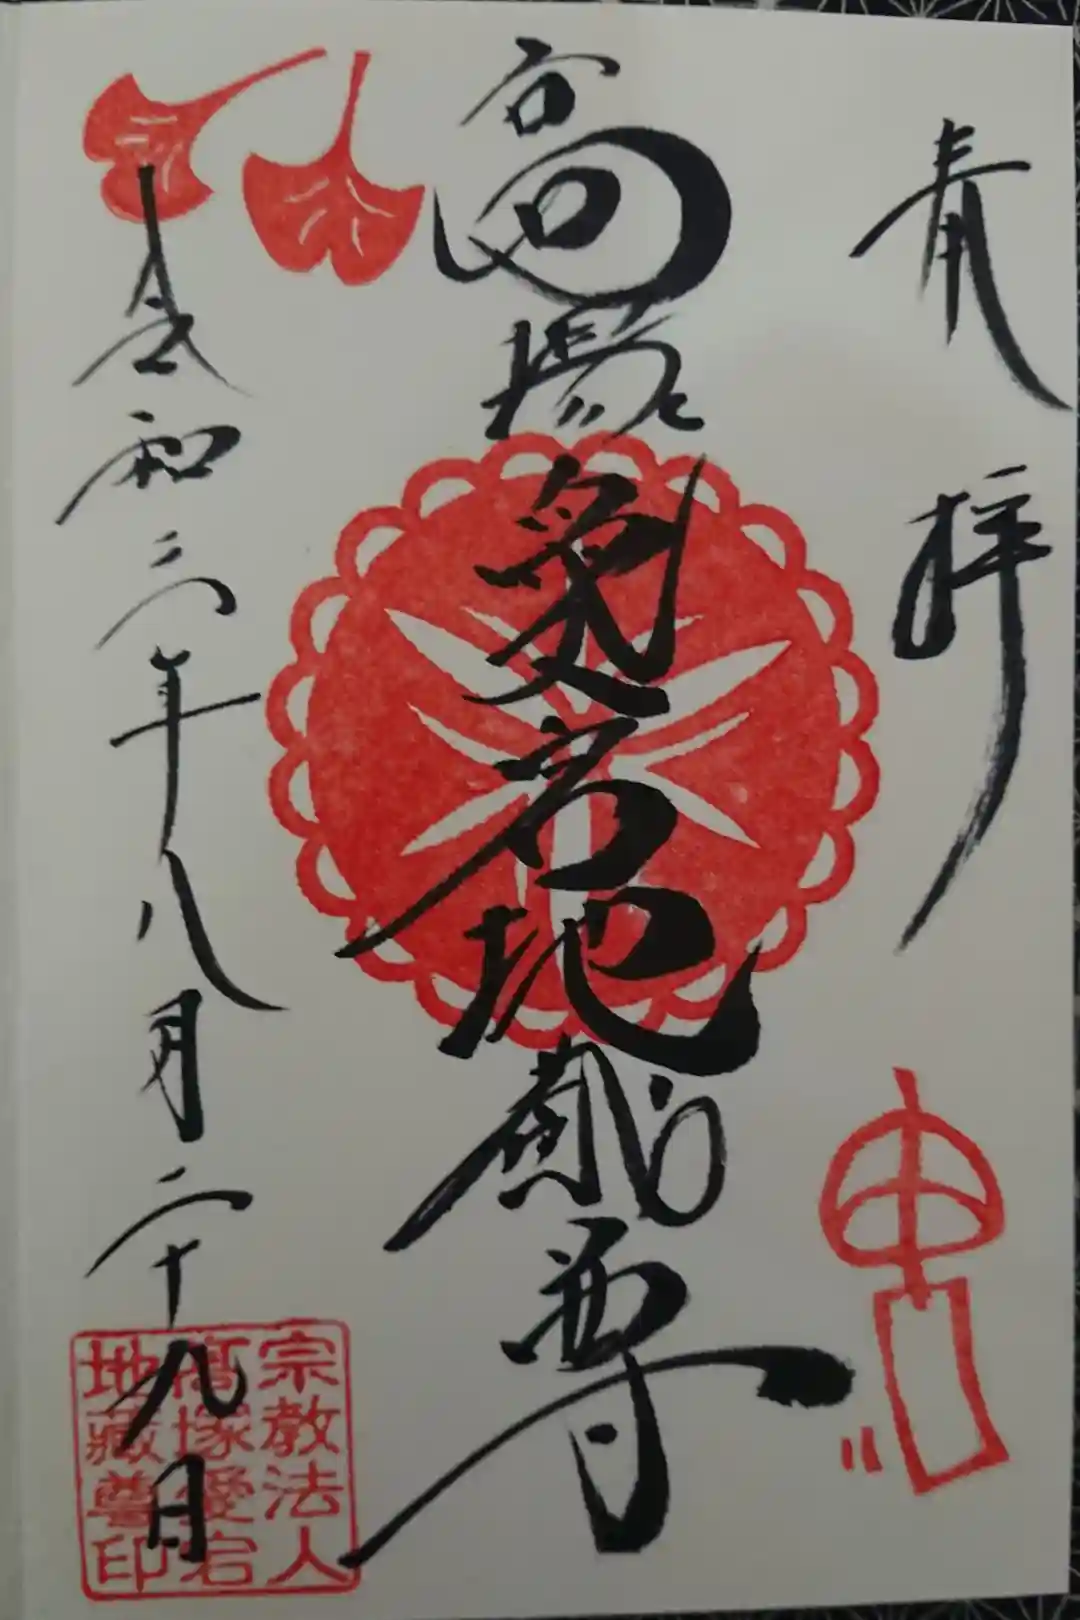 奉拝
高塚愛宕地蔵尊
令和六年八月二十九日
宗教法人
高塚愛宕
地蔵尊印